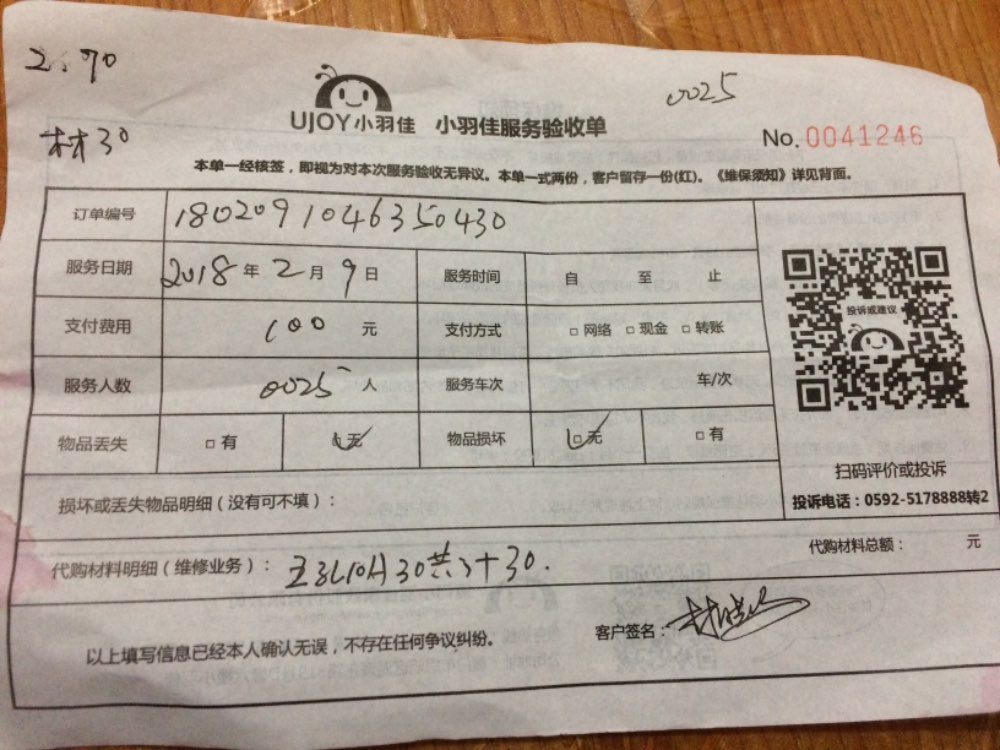 2:70
0025
材30
UJOY小羽佳 小羽佳服务验收单
No. 0041246
本单一经核签，即视为对本次服务验收无异议。本单一式两份，客户留存一份(红)。《维保须知》详见背面。
订单编号 1802091046350430
服务日期 2018年2月9日 服务时间 自 至 止
支付费用 100 元 支付方式 □网络 □现金 □转账
投诉或建议
服务人数 0025 人 服务车次 车/次
物品丢失 □有 □无 物品损坏 □无 □有
扫码评价或投诉
投诉电话：0592-5178888转2
损坏或丢失物品明细（没有可不填）：
代购材料总额： 元
代购材料明细（维修业务）： 30共计30.
客户签名：
以上填写信息已经本人确认无误，不存在任何争议纠纷。